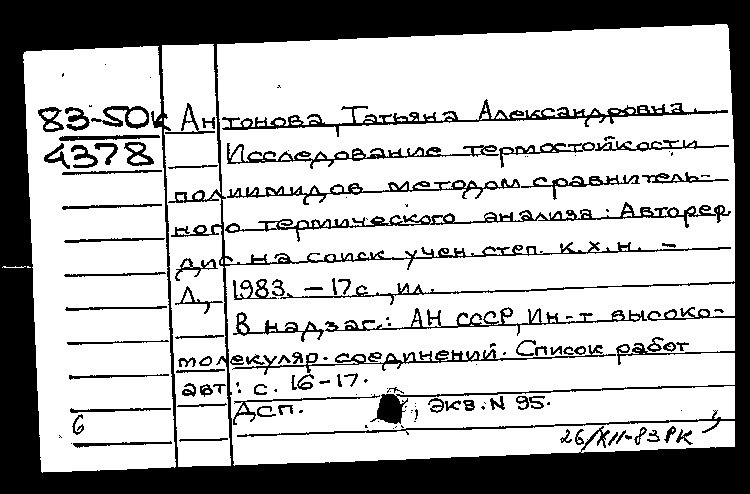 83-50к Антонова, Татьяна Александровна.
4378 Исследование термостойкости
полиимидов методом сравнитель-
ного термического анализа: Автореф
дис. на соиск учен. степ. к.х.н. -
Л., 1983. - 17с., ил.
В надзаг.: АН СССР, Ин-т высоко-
молекуляр. соединений. Список работ
авт.: с. 16-17.
Дсп. ; экз. N 95.
6
26/XII-83 РК